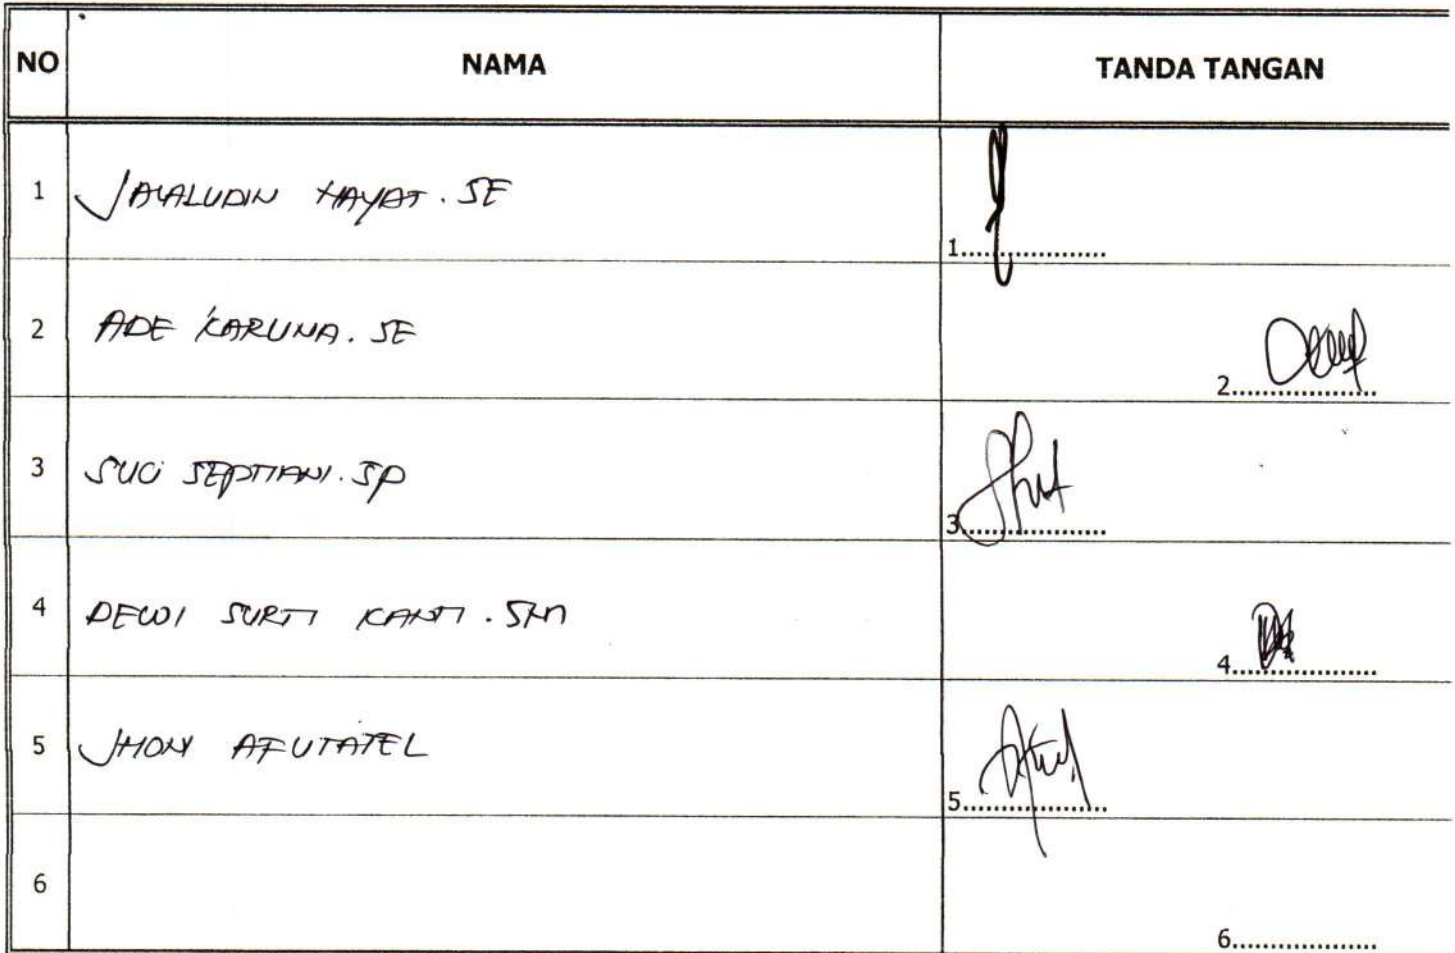 NO NAMA TANDA TANGAN
1 JAYALUDIN HAYAT. SE 1..................
2 ADE KARUNA. SE 2..................
3 SUCI SEPTIANI. SP 3..................
4 DEWI SURTI KANTI. SM 4..................
5 JHONY AFUTATEL 5..................
6 6..................